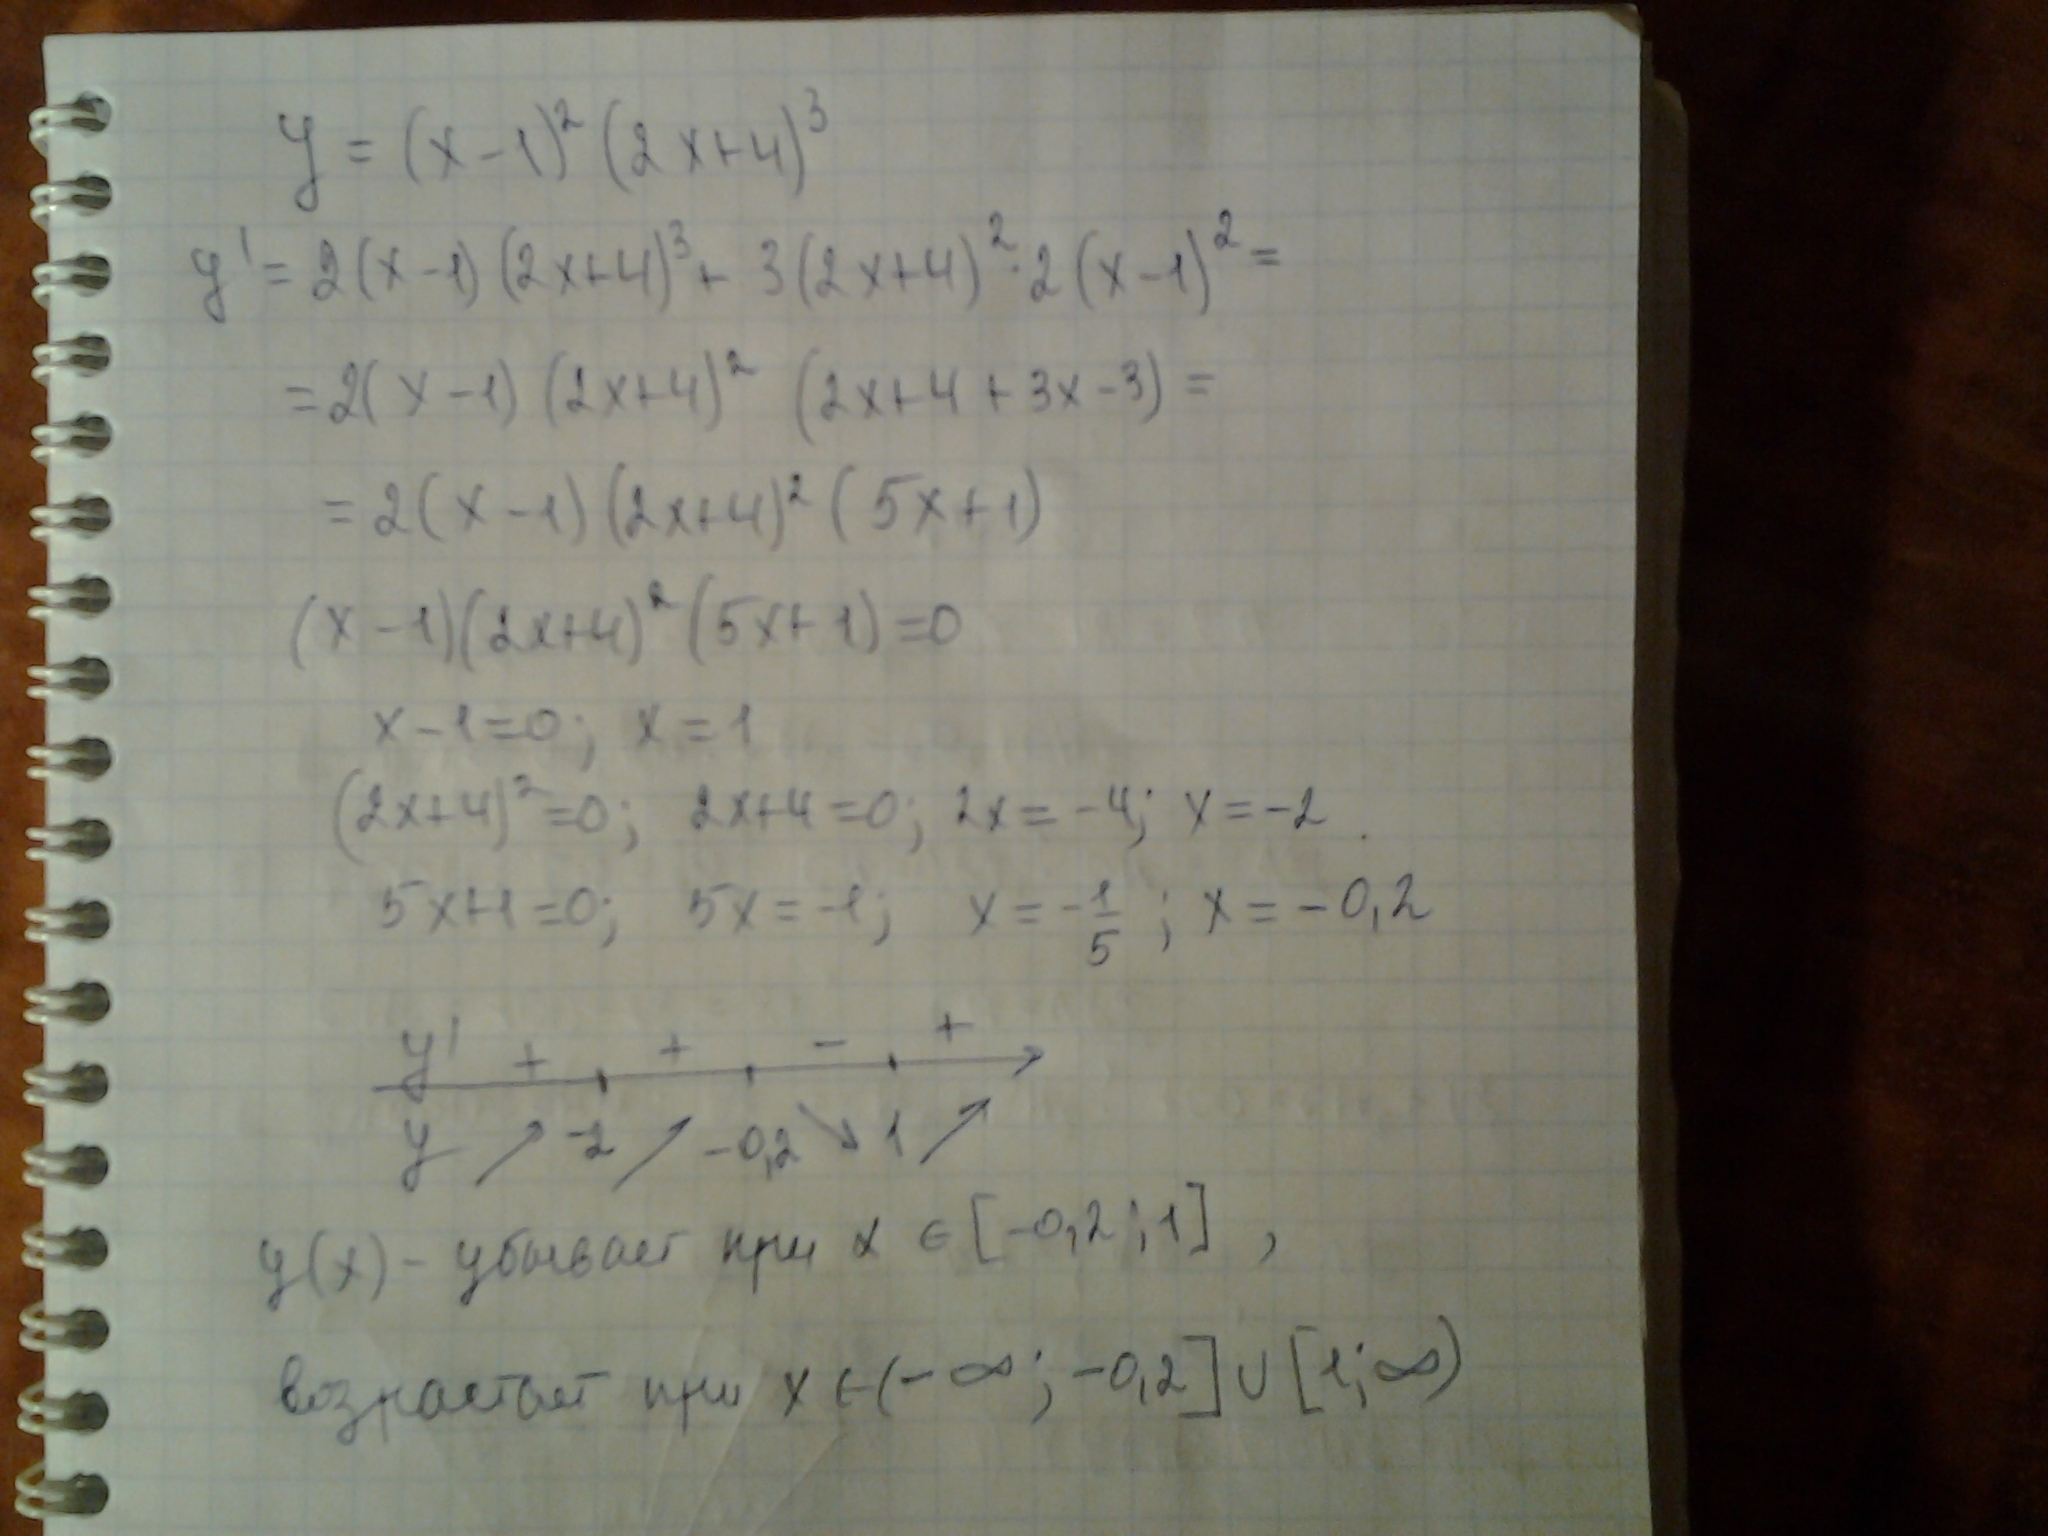 y = (x-1)² (2x+4)³
y' = 2(x-1) (2x+4)³ + 3(2x+4)² · 2(x-1)² =
= 2(x-1) (2x+4)² (2x+4+3x-3) =
= 2(x-1) (2x+4)² (5x+1)
(x-1)(2x+4)² (5x+1) = 0
x-1=0; x=1
(2x+4)²=0; 2x+4=0; 2x=-4; x=-2.
5x+1=0; 5x=-1; x=-1/5; x=-0,2
y' + + - +
y ↗ -2 ↗ -0,2 ↘ 1 ↗
y(x) - убывает при x ∈ [-0,2; 1],
возрастает при x ∈ (-∞; -0,2] ∪ [1; ∞)